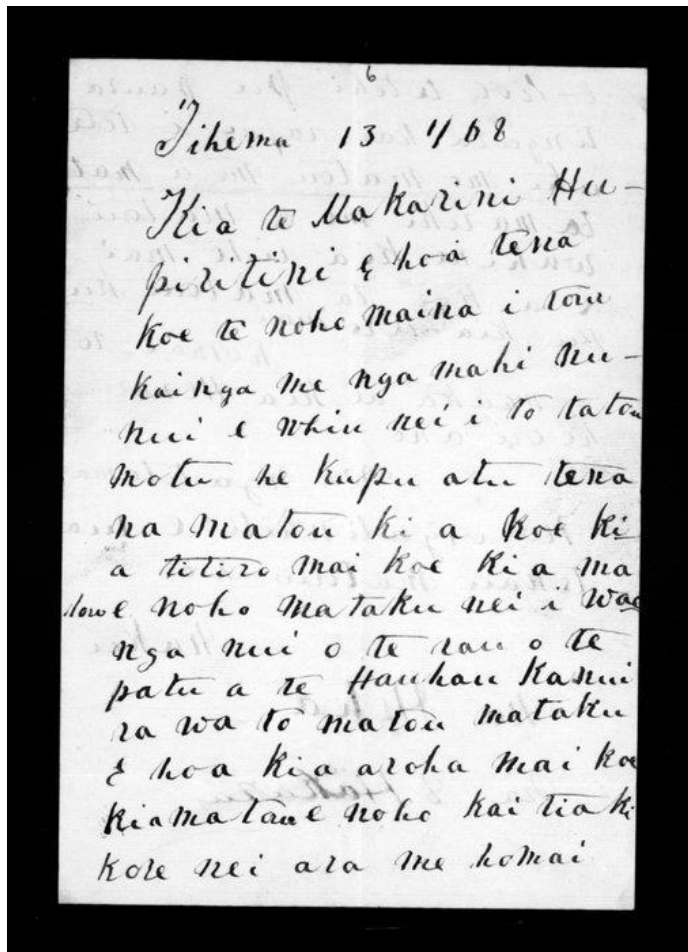 6
Tihema 13 1/68
Kia te Makarini Hu-
piritini E hoa tena
koe te noho maina i tou
kainga me nga mahi nu-
nui e whiu nei i to tatou
motu he kupu atu tena
na matou ki a koe ki-
a titiro mai koe ki a ma
tou e noho mataku nei i wae
nga nui o te rau o te
patu a te Hauhau Kanui
ra wa to matou mataku
E hoa kia aroha mai koe
kiamatou e noho kai tia ki
kore nei ara me homai